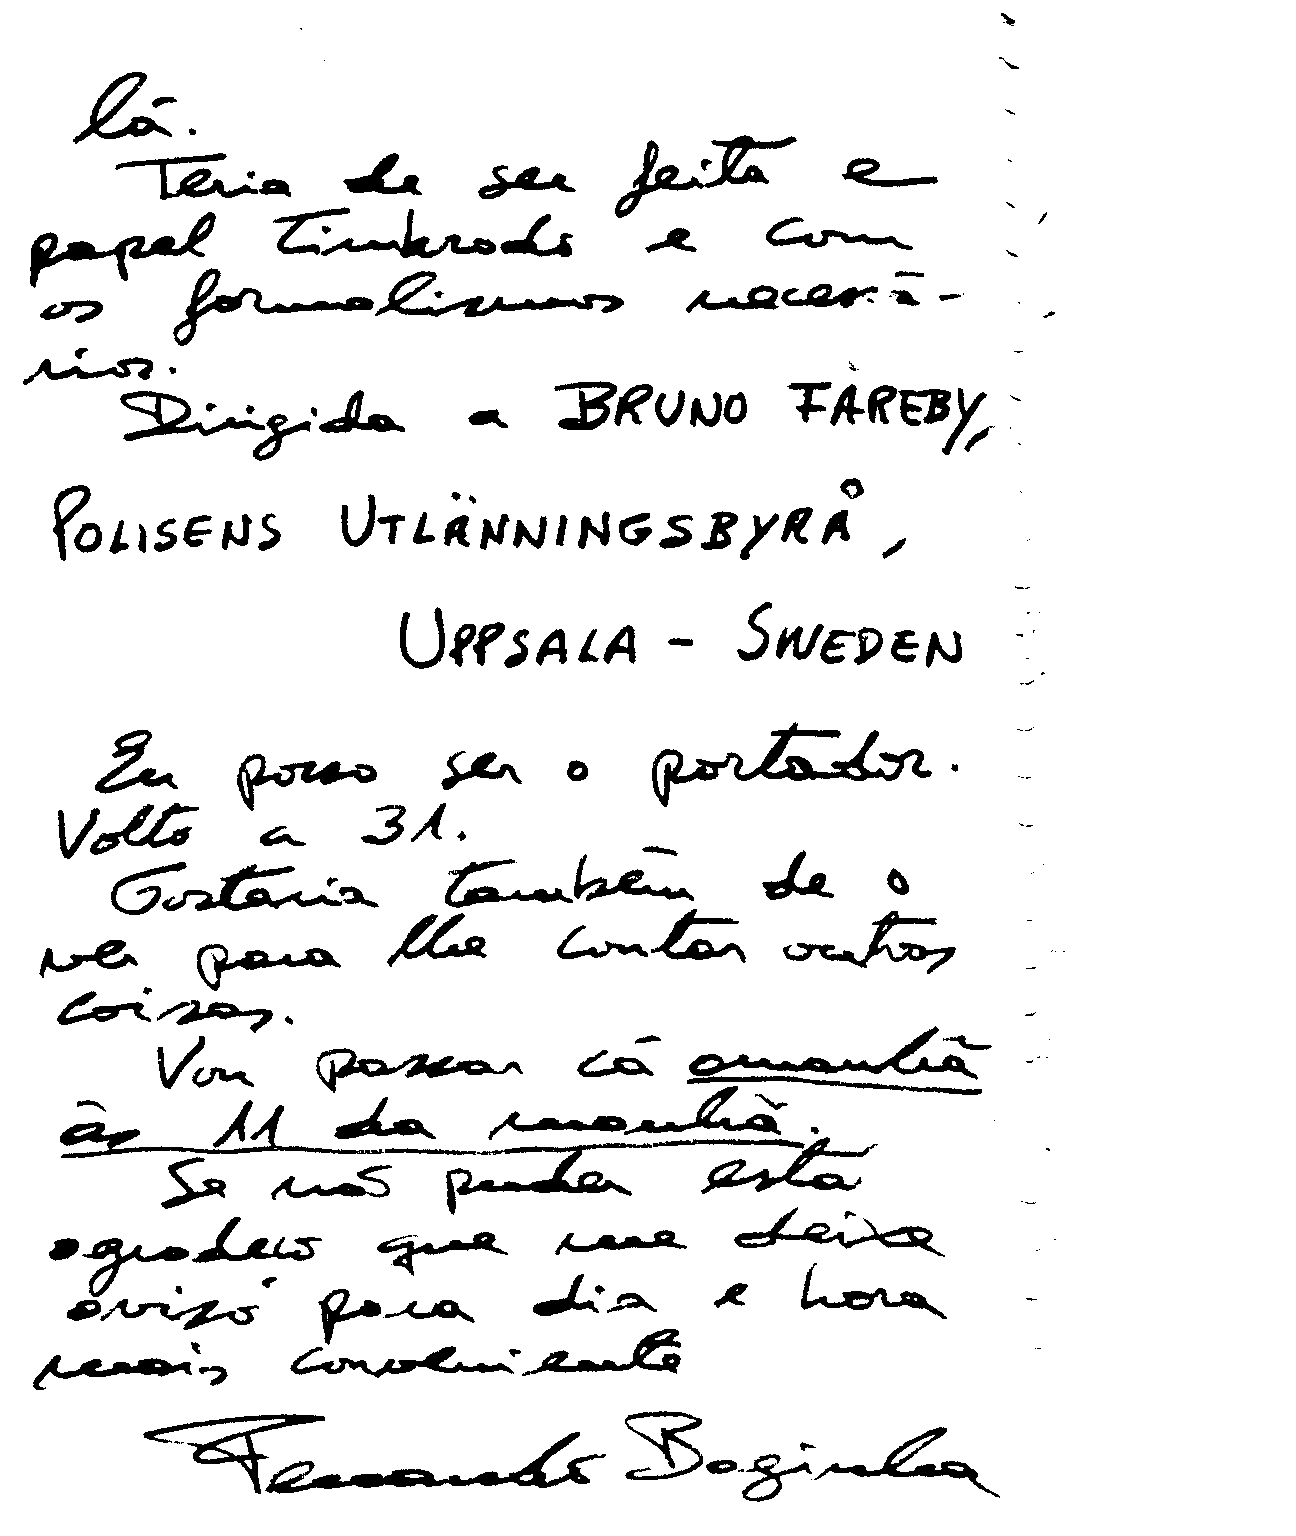 lá.
Teria de ser feita e
papel timbrado e com
os formalismos necessá-
rios.
Dirigida a BRUNO FÅREBY,
POLISENS UTLÄNNINGSBYRÅ,
UPPSALA - SWEDEN
Eu posso ser o portador.
Volto a 31.
Gostaria também de o
ver para lhe contar outras
coisas.
Vou passar cá amanhã
às 11 da manhã.
Se não puder esta
agradeço que me deixe
aviso para dia e hora
mais conveniente
Fernando Baginha